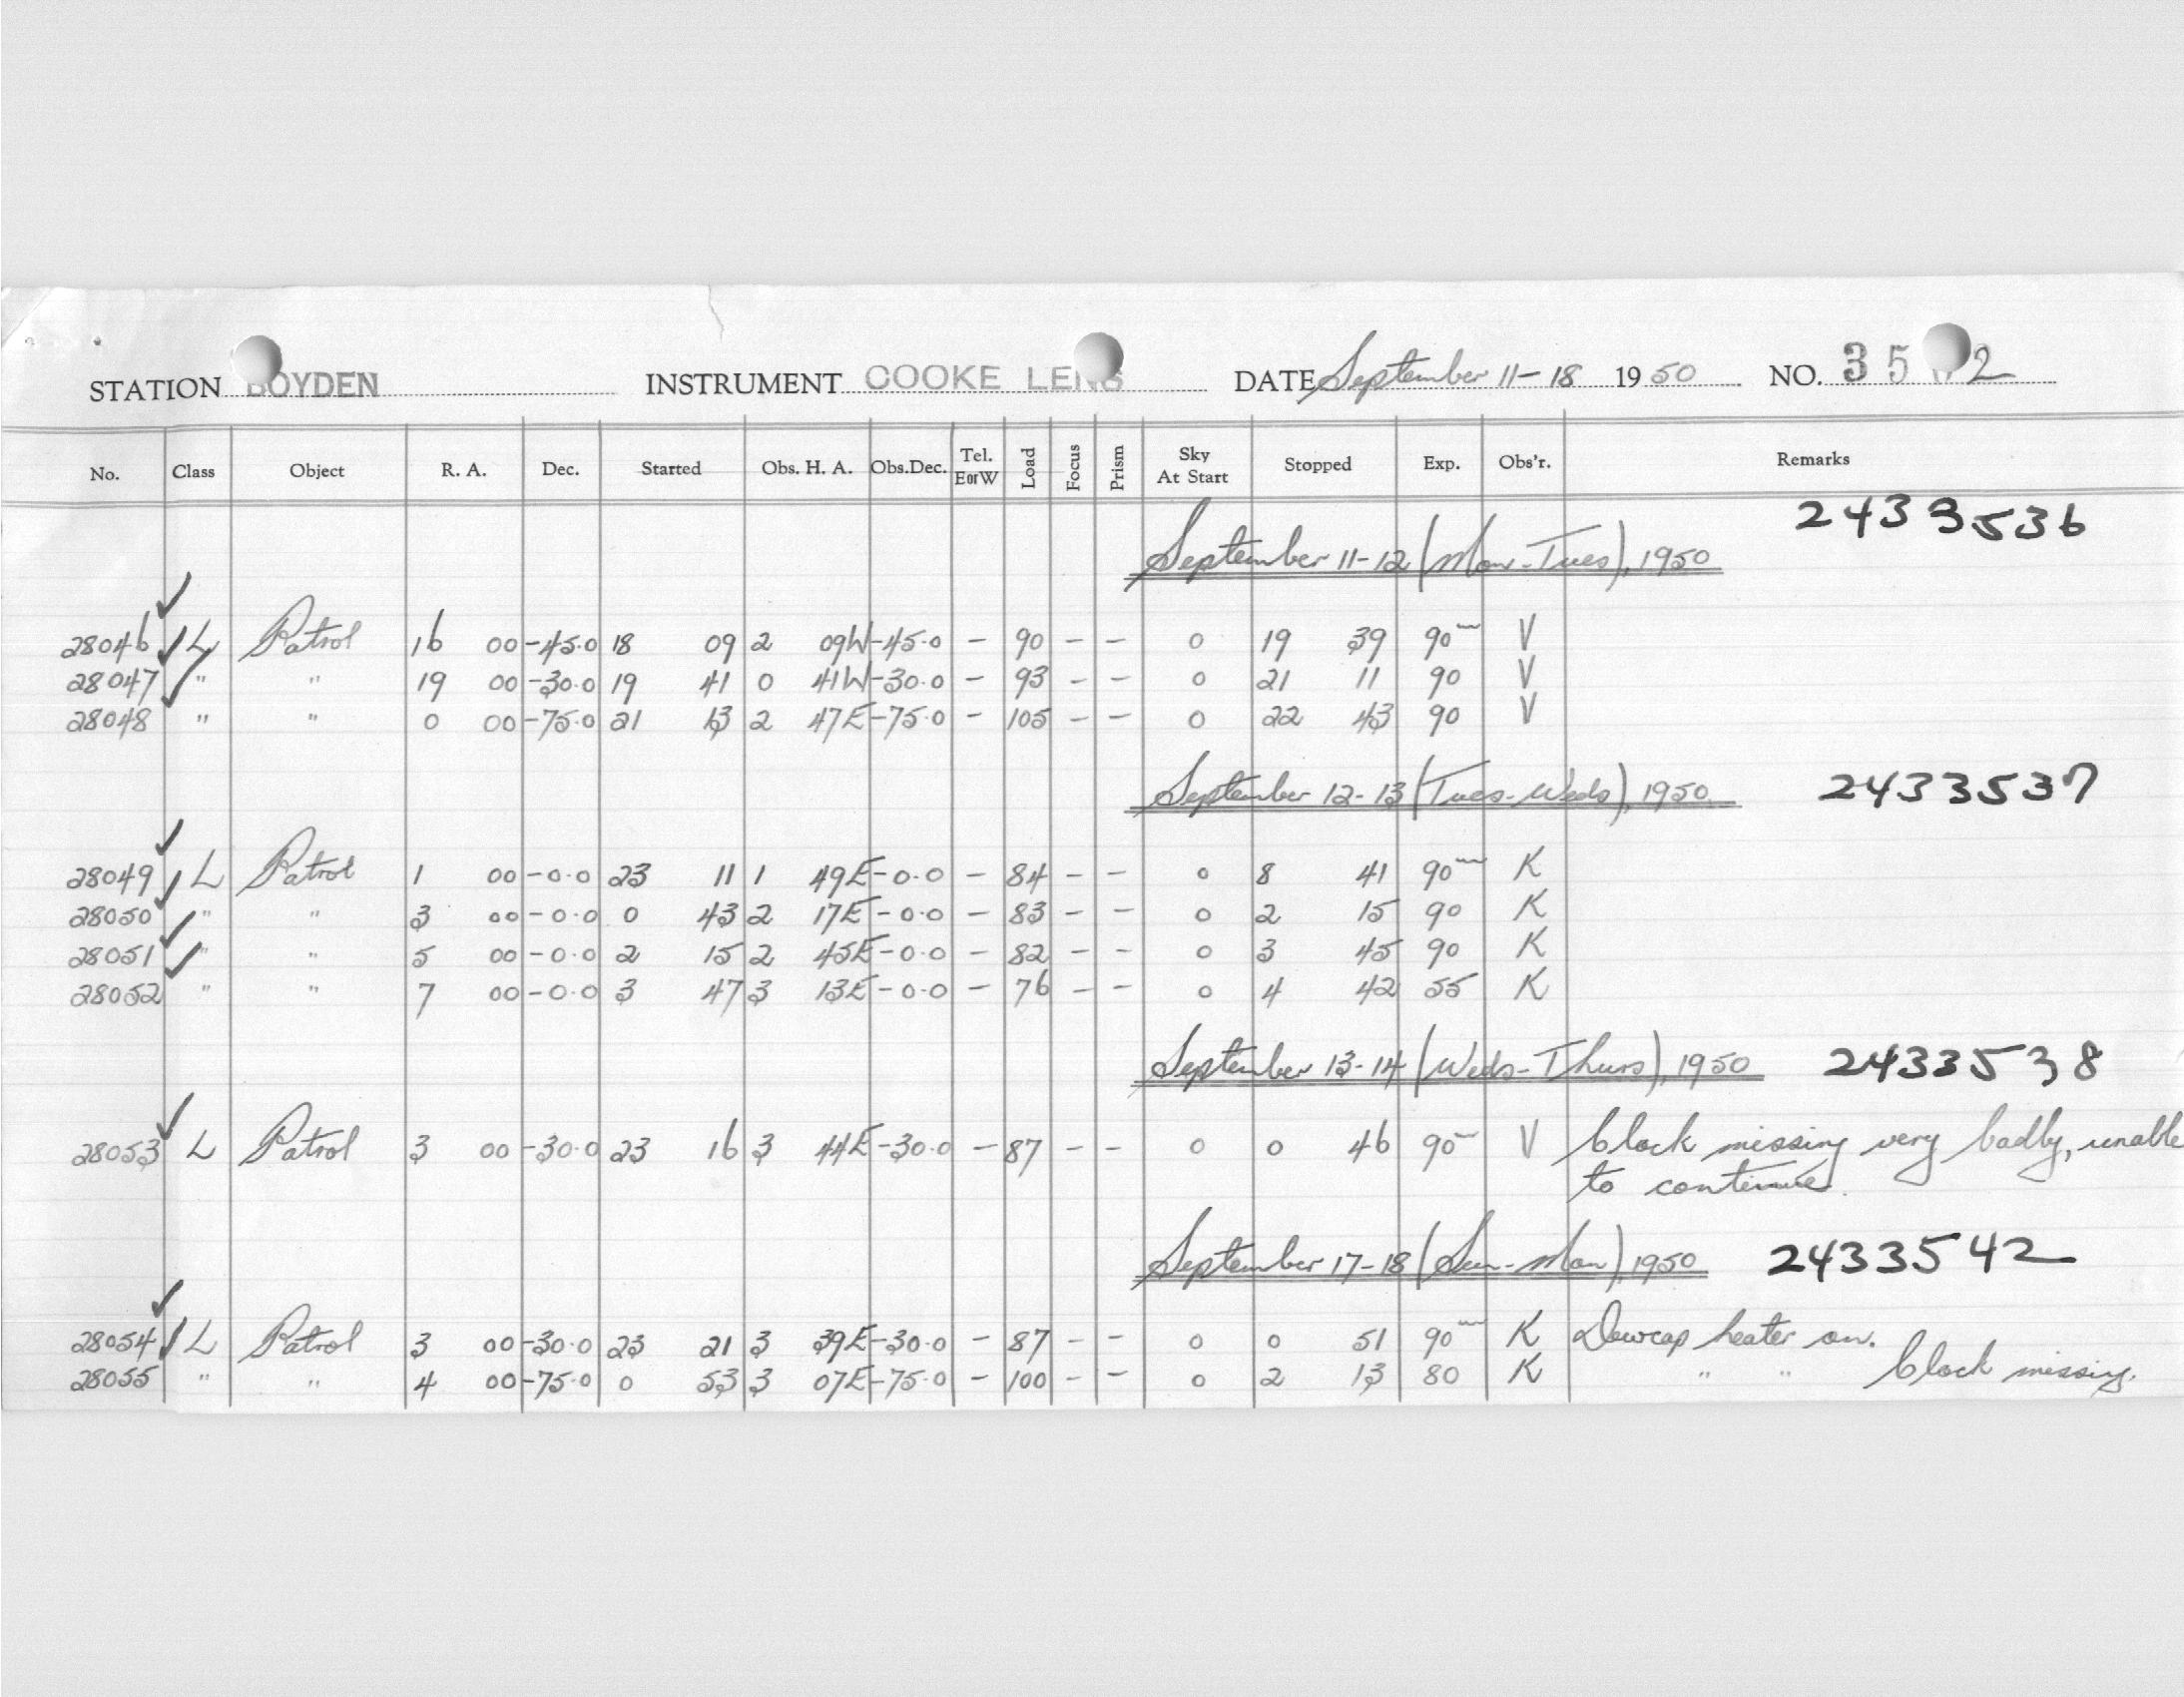 STATION BOYDEN INSTRUMENT COOKE LENS DATE September 11-18 1950 NO. 35 2
No. Class Object R. A. Dec. Started Obs. H. A. Obs.Dec. Tel. E or W Load Focus Prism Sky At Start Stopped Exp. Obs'r. Remarks
2433536
September 11-12 (Mon-Tues), 1950
28046 L Patrol 16 00 -45.0 18 09 2 09W -45.0 - 90 - - 0 19 39 90m V
28047 " " 19 00 -30.0 19 41 0 41W -30.0 - 93 - - 0 21 11 90 V
28048 " " 0 00 -75.0 21 13 2 47E -75.0 - 105 - - 0 22 43 90 V
September 12-13 (Tues-Weds), 1950 2433537
28049 L Patrol 1 00 -0.0 23 11 1 49E -0.0 - 84 - - 0 8 41 90m K
28050 " " 3 00 -0.0 0 43 2 17E -0.0 - 83 - - 0 2 15 90 K
28051 " " 5 00 -0.0 2 15 2 45E -0.0 - 82 - - 0 3 45 90 K
28052 " " 7 00 -0.0 3 47 3 13E -0.0 - 76 - - 0 4 42 55 K
September 13-14 (Weds-Thurs), 1950 2433538
28053 L Patrol 3 00 -30.0 23 16 3 44E -30.0 - 87 - - 0 0 46 90m V Clock missing very badly, unable
to continue.
September 17-18 (Sun-Mon), 1950 2433542
28054 L Patrol 3 00 -30.0 23 21 3 39E -30.0 - 87 - - 0 0 51 90m K Dewcap heater on.
28055 " " 4 00 -75.0 0 53 3 07E -75.0 - 100 - - 0 2 13 80 K " " Clock missing.